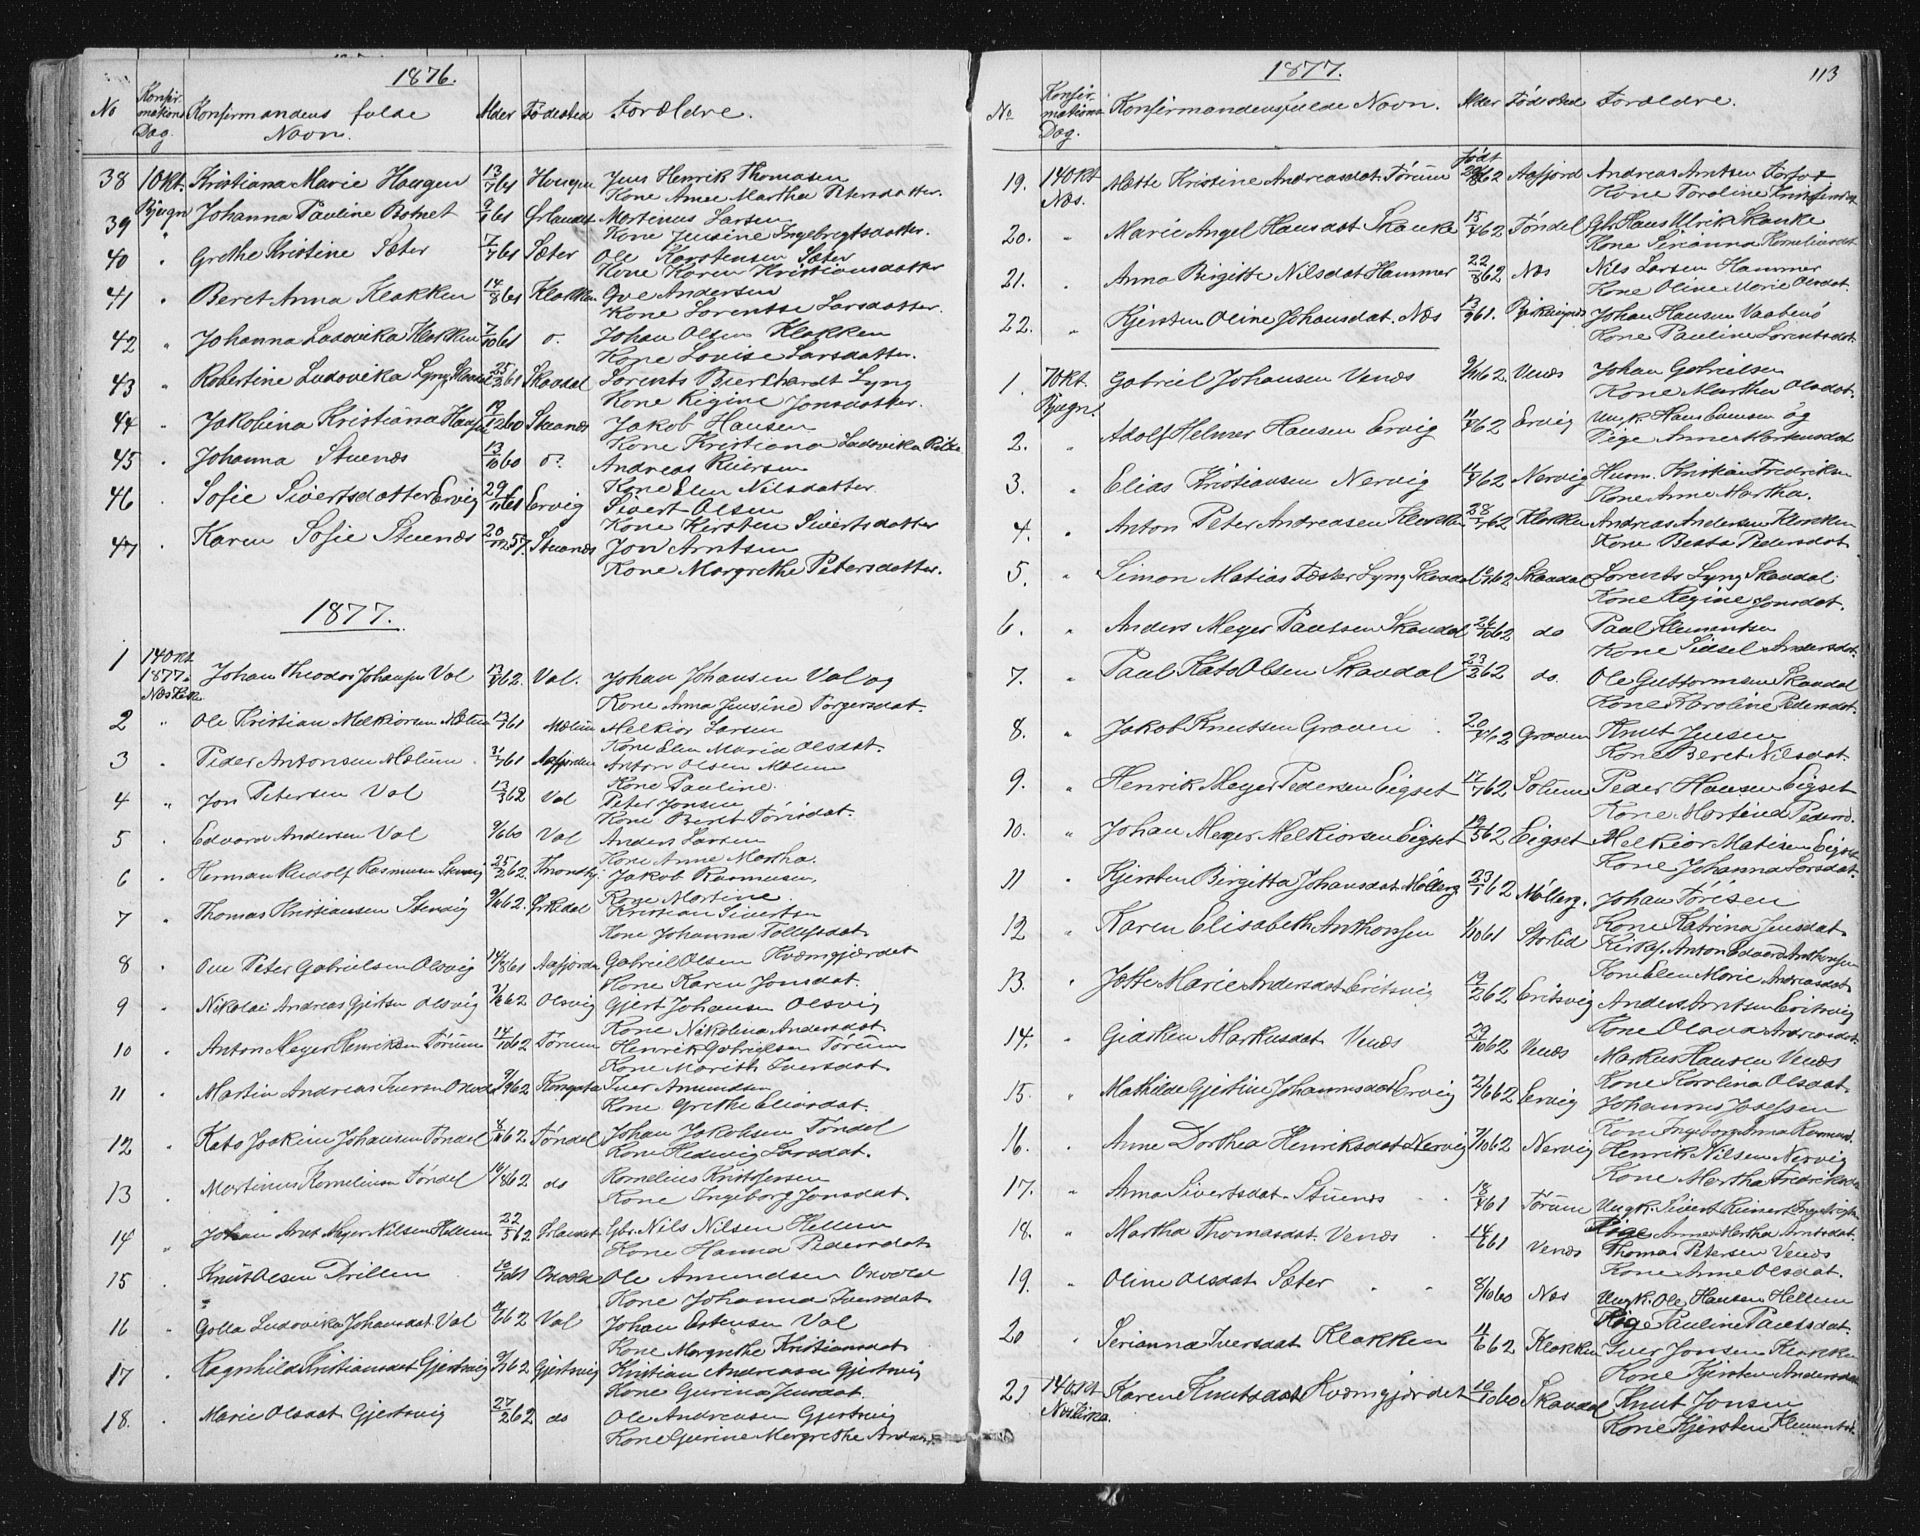 1876.
No Konfirmations Dag. Konfirmandens fulde Navn. Alder Fødested Forældre.
38 10 Kt. Kristiana Marie Haugen 13/7 61 Haugen Jens Henrik Thomasen
Kone Anne Martha Petersdatter.
39 Bjugn Johanna Pauline Botnet 9/1 61 Ørlandet Mortenus Larsen
Kone Jensine Ingebrigtsdatter.
40 " Grethe Kristine Sæter 7/7 61 Sæter Ole Karstensen Sæter
Kone Karen Kristiansdatter
41 " Beret Anna Klakken 14/8 61 Klakken Ove Andersen
Kone Lorentse Larsdatter.
42 " Johanna Ludovika Klakken 7/10 61 do. Johan Olsen Klakken
Kone Lovise Larsdatter.
43 " Robertine Ludovika Lyng Skavdal 25/3 61 Skavdal Lorents Bierchardt Lyng
Kone Regine Jonsdatter.
44 " Jakobina Kristiana Hansen 19/12 60 Stuenæs Jakob Hansen
Kone Kristiana Ludovika
45 . Johanna Stuenæs 13/10 60 do. Andreas Reiersen
Kone Elen Nilsdatter
46 . Sofie Sivertsdatter Ervig 29/11 61 Ervig Sivert Olsen
Kone Kirsten Sivertsdatter
47 . Karen Sofie Stuenæs 20/12 57. Stuenæs Jon Arntsen
Kone Margrethe Petersdatter.
1877.
1 14 Okt 1877. Næs Kirke Johan Theodor Johansen Val 13/4 62. Val. Johan Johansen Val og
Kone Anna Jensine Torgersdat.
2 " Ole Kristian Melkiorsen Mælum 13/7 61 Mælum Melkior Larsen
Kone Elen Maria Olsdat.
3 . Peder Antonsen Mælum 31/7 61 Aafjorden Anton Olsen Mælum
Kone Pauline
4 " Jon Petersen Val 13/3 62 Val Peter Jonsen
Kone Beret Tørrisdat.
5 . Edvard Andersen Val 9/6 60 Val Anders Larsen
Kone Anne Martha.
6 . Herman Rudolf Rasmusen Stenvig 25/2 62. Throndhj. Jakob Rasmusen,
Kone Martine
7 . Thomas Kristiansen Stenvig 9/11 62. Ørkedal Kristian Sivertsen
Kone Johanna Tollefsdat.
8 . Ove Peter Gabrielsen Olsvig 14/8 61 Aafjorden Gabriel Olsen Kvamgjærdet
Kone Karen Jonsdat.
9 . Nikolai Andreas Gjertsen Olsvig 3/6 62 Olsvig Gjert Johansen Olsvig
Kone Nikolina Andersdat.
10 . Anton Meyer Henriksen Tørum 14/10 62 Tørum Henrik Gabrielsen Tørum
Kone Marith Iversdat.
11 . Martin Andreas Iversen 9/9 62 Iver Amundsen
Kone Grethe Eliasdat.
12 . Kato Joakim Johansen Tøndel 8/11 62 Tøndel Johan Jakobsen Tøndel
Kone Hedevig Larsdat.
13 . Martinus Kornelius Tøndel 16/8 62 do Kornelius Kristofersen
Kone Ingeborg Jonsdat.
14 " Johan Arnt Meyer Nilsen Hellem 22/5 62 Ørlandet Gbr. Nils Nilsen Hellem
Kone Hanna Pedersdat.
15 Knut Olsen Drillen 10/10 61 Oxvold Ole Amundsen Oxvold
Kone Johanna Iversdat.
16 . Golla Ludovika Johansdat. Val 11/6 62 Val Johan Estensen Val
Kone Margrethe Kristiansdat.
17 . Ragnhild Kristiansdat Gjertsvig 9/1 62 Gjertsvig Kristian Andreasen Gjertsvig
Kone Gurina Jensdat.
18. . Marie Olsdat Gjertsvig 27/2 62 do Ole Andreasen Gjertsvig
Kone Gurine Margrethe
1877. 113
No Konfirmations Dag. Konfirmandens fulde Navn. Alder Fødested Forældre.
19. 14 Okt Næs. Mette Kristine Andreasdat. Tørum født 62 Aafjord Andreas Arntsen
Kone Caroline
20. " Marie Angel Hansdat Skanke 15/4 62 Tøndel Gbr. Hans Ulrik Skanke
Kone Serianna Korneliusdat
21. . Anna Birgitte Nilsdat Hammer 22/8 62 Næs Nils Larsen Hammer
Kone Oline Marie Olsdat.
22. " Kjersten Oline Johansdat. Næs 13/9 61. Johan Hansen
Kone Pauline Lorentsdat.
1. 7 Okt. Bjugn. Gabriel Johansen Venæs 9/11 62. Venæs Johan Gabrielsen
Kone Martha Olsdat.
2. " Adolf Helmer Hansen Ervig 11/4 62 Ervig Ungk. Hans og
Pige Anne
3. " Elias Kristiansen Nervig 11/4 62 Nervig Husm. Kristian Fredriksen
Kone Anne Martha.
4. " Anton Peter Andreasen Klakken 28/7 62 Klakken Andreas Andersen Klakken
Kone Beata Pedersdat.
5. " Simon Matias Foster Lyng Skavdal 62 Skavdal Lorents Lyng Skavdal.
Kone Regine Jonsdat.
6. " Anders Meyer Paulsen Skavdal 26/10 62 do Paul Klementsen
Kone Sidsel Andersdat.
7. " Paul Kato Olsen Skavdal 23/2 62 do. Ole Guttormsen Skavdal
Kone Karoline Pedersdat.
8. " Jakob Knutsen Graven 20/4 62 Graven Knut Jensen
Kone Beret Nilsdat.
9. " Henrik Meyer Pedersen Eigset 17/7 62 Solum Peder Hansen Eigset
Kone Martina Pedersd.
10. " Johan Meyer Melkiorsen Eigset 19/5 62 Eigset Melkior Matisen Eigset
Kone Johanna Larsdat.
11 " Kjersten Birgitta Johansdat. Mølberg 23/1 62 Mølberg. Johan Tørisen
Kone Katrina Jensdat.
12 " Karen Elisabeth Anthonsen 1/10 61 Storlid Kirkes. Anton Edvard Anthonsen
Kone Elen Marie Andreasdat.
13. " Jotte Marie Andersdat Eritsvig 19/2 62 Eritsvig Anders Arntsen Eritsvig
Kone Olava Andreasdat
14. " Giærken Markusdat Venæs 29/10 62 Venæs Markus Hansen Venæs
Kone Karolina Olsdat.
15. " Mathilde Gjertine Johannesdat Ervig 2/6 62 Ervig Johannes Josefsen
Kone Ingeborg Anna
16. " Anne Dorthea Henriksdat Nervig 7/10 62 Nervig Henrik Nilsen Nervig
Kone Martha Fredriksdat
17. " Anna Sivertsdat. Stuenæs 18/4 61 Tørum Ungk. Sivert Reinert Ingebrigtsen
Pige Anne Martha Arntsdat.
18. " Martha Thomasdat Venæs 14/6 61 Venæs Thomas Petersen Venæs
Kone Anne Olsdat.
19. " Oline Olsdat Sæter 8/10 60 Næs Ungk. Ole Hansen Hellem
Pige Pauline Paulsdat.
20 " Serianna Iversdat Klakken 11/6 62 Klakken Iver Jonsen Klakken
Kone Kjersten Andersdat
21 14 Okt Næs Kirke. Karen Knutsdat Kvamgjærdet 10/10 60 Skavdal Knut Jonsen
Kone Kjersten Klementsd.